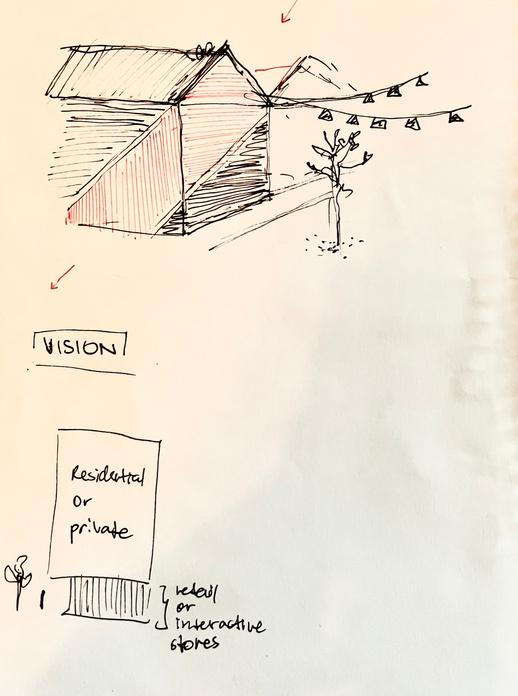 VISION
Residential
or
private
retail
or
interactive
stores